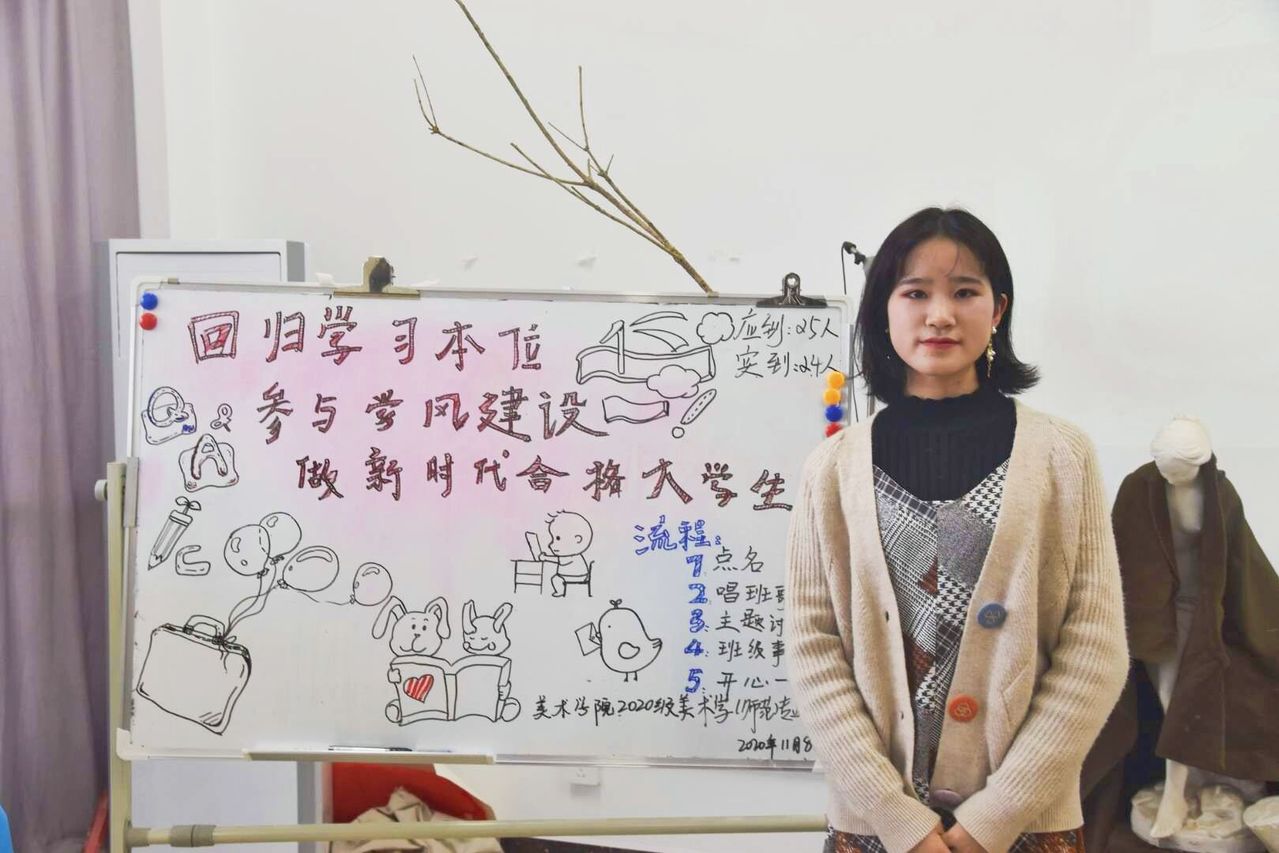 回归学习本位
参与学风建设
做新时代合格大学生
应到:25人
实到:24人
Q & A
流程:
1. 点名
2. 唱班歌
3. 主题讨
4. 班级事
5. 开心一
美术学院2020级美术学(师范)专
2020年11月8